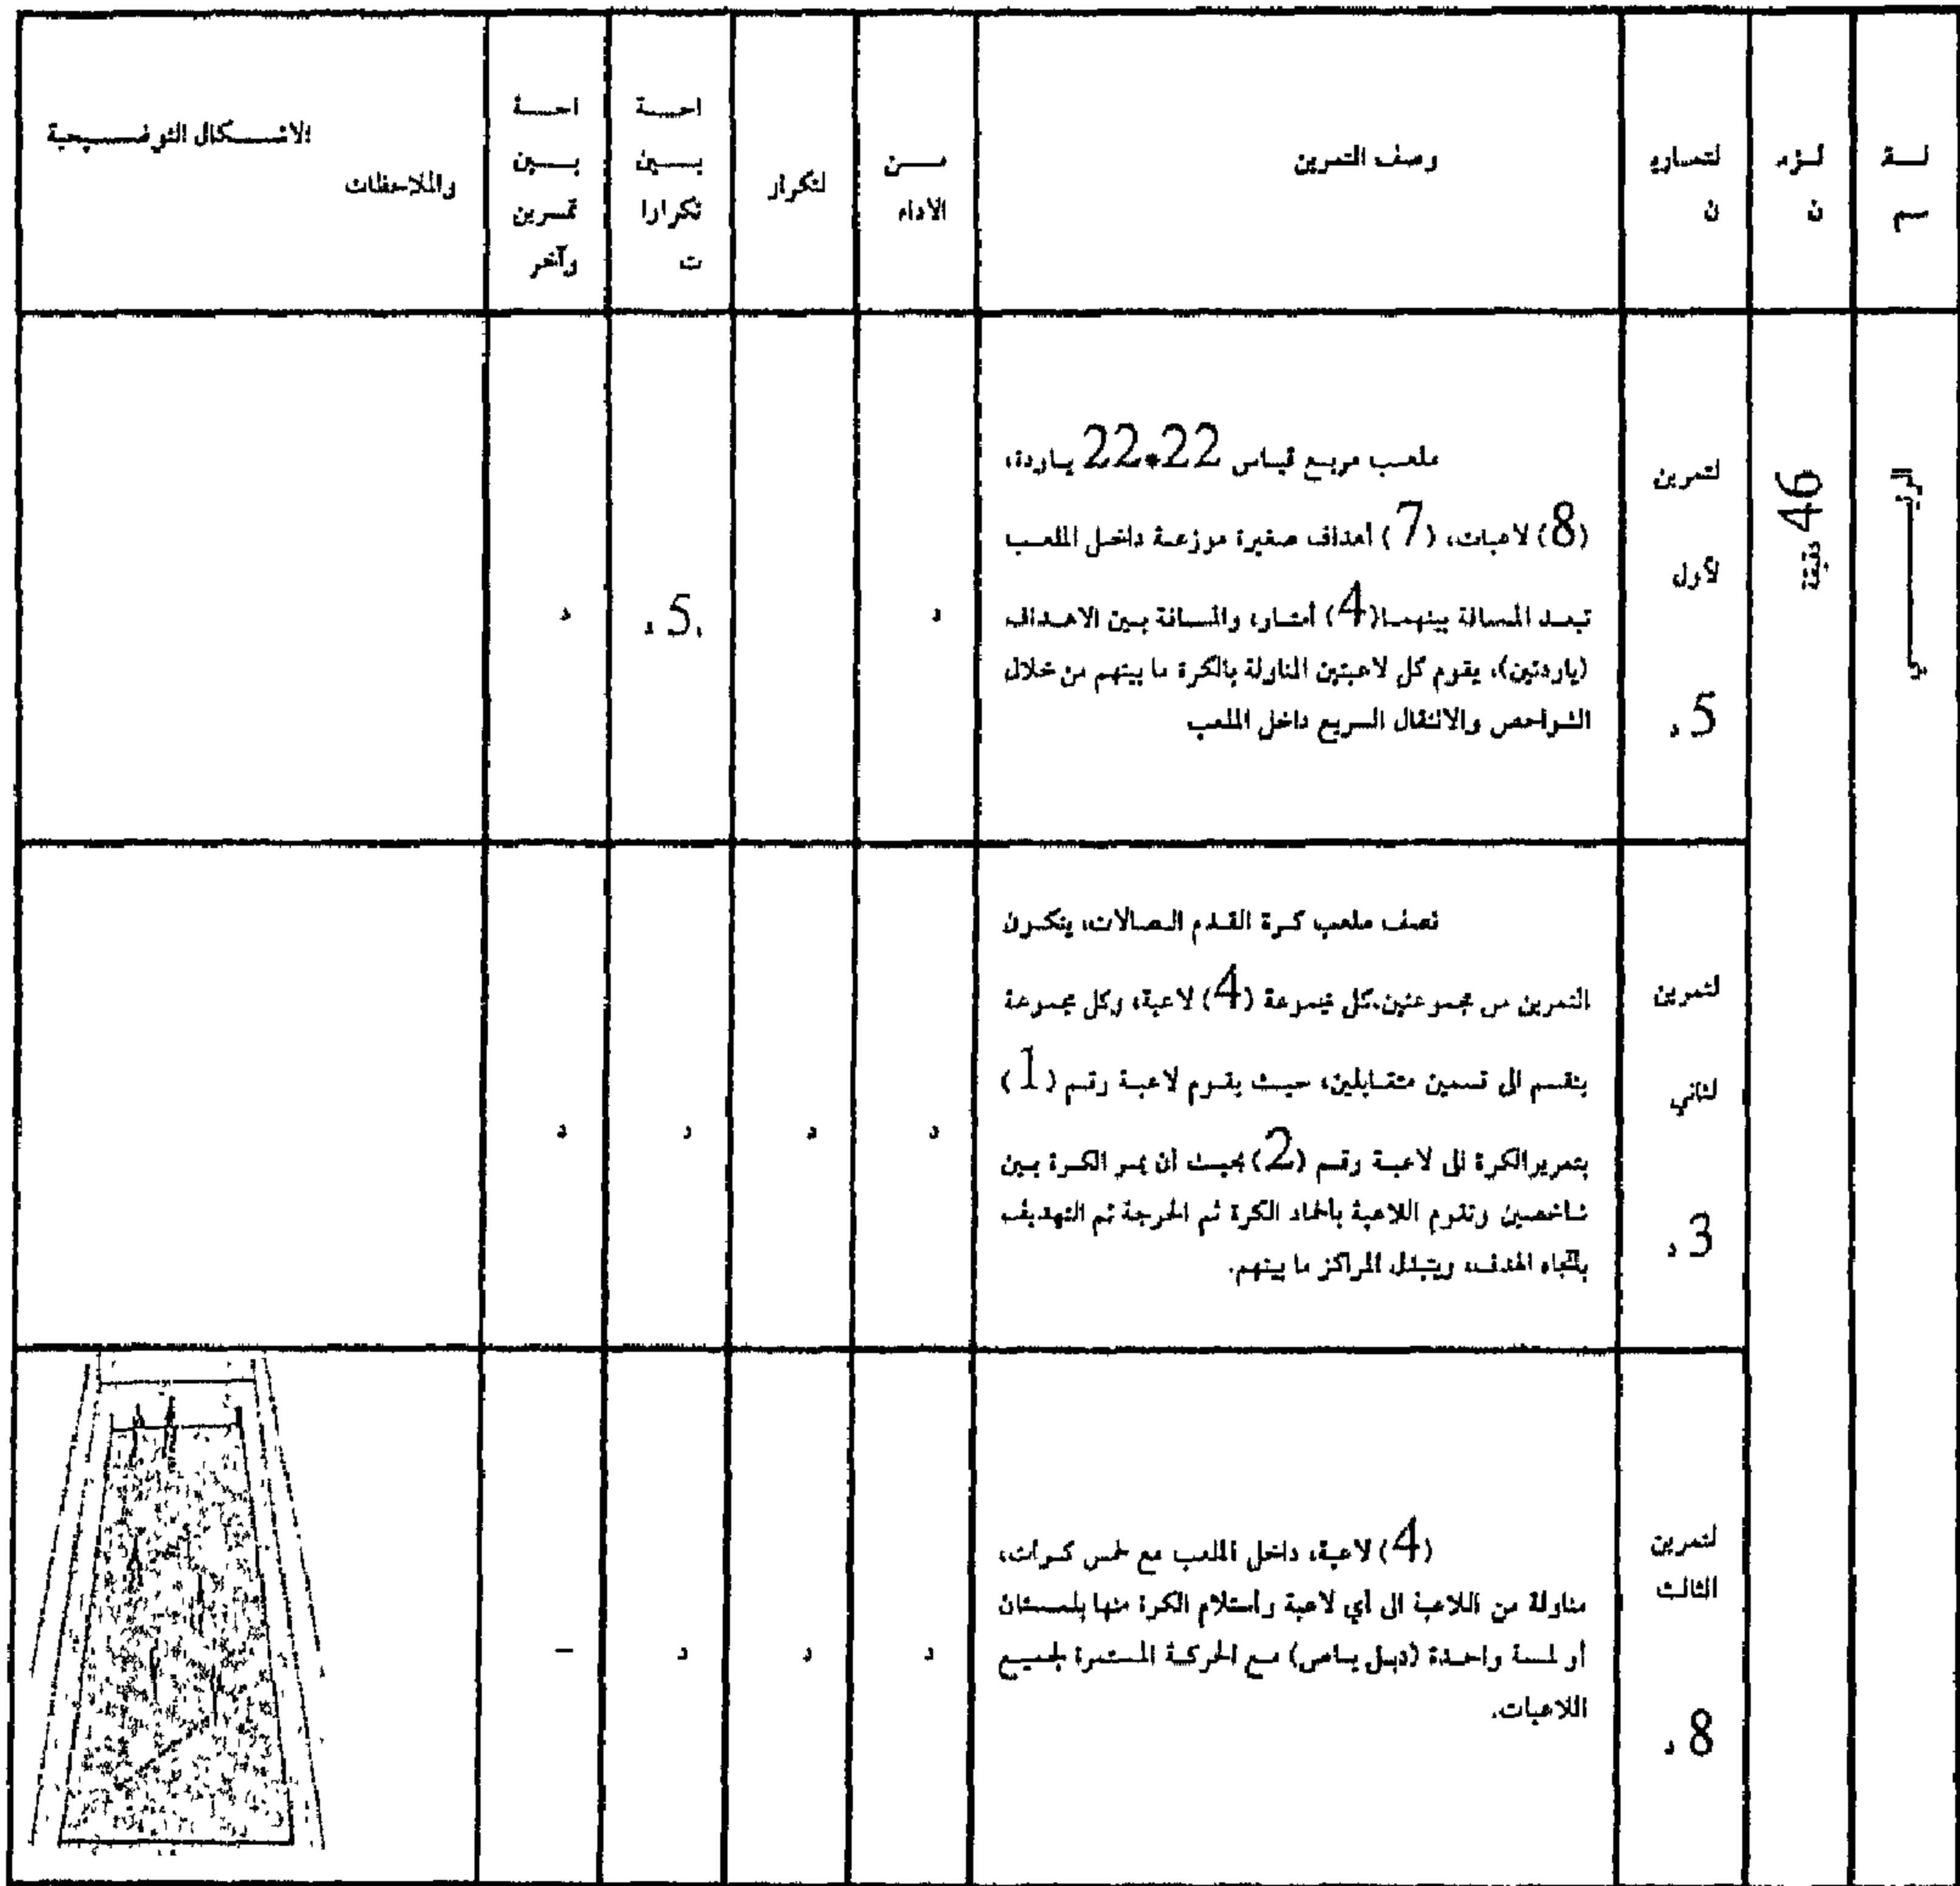 لـــة
م
لـزم
ن
لتمـاري
ن
وصف التمرين
مـــن
الاداء
لتكرار
احـــة
بـــين
تكرارا
ت
احـــة
بـــين
تمـرين
وآخر
الاشـــكال التوضـــيحية
والملاحظات
46 دقيقة
لتمرين
لأول
5. د
ملعـب مربـع قيـاس 22*22 يـاردة،
(8) لاعبات، (7) أهداف صغيرة موزعـة داخـل الملعـب
تبعـد المسـافة بينهمـا (4) أمتـار، والمسـافة بـين الاهـداف
(ياردتين)، يقوم كل لاعبتين المناولة بالكرة ما بينهم من خلال
الشواخص والانتقال السريع داخل الملعب
د
5. د
د
لتمرين
لثاني
3. د
نصف ملعب كـرة القـدم الـصالات، يتكـون
التمرين من مجموعتين،كل مجموعة (4) لاعبة، وكل مجموعة
ينقسم الى قسمين متقـابلين، حيـث يقـوم لاعبـة رقـم (1)
بتمريرالكرة الى لاعبـة رقـم (2) بحيـث أن يمر الكـرة بـين
شاخصين وتقوم اللاعبة بأخماد الكرة ثم الدحرجة ثم التهديف
بإتجاه الهدف، ويتبدل المراكز ما بينهم.
د
د
د
د
لتمرين
الثالث
8. د
(4) لاعبة، داخل الملعب مع خمس كـرات،
مناولة من اللاعبة الى أي لاعبة وأستلام الكرة منها بلمـستان
أو لمسة واحـدة (دبـل بـاص) مـع الحركـة المسـتمرة لجميـع
اللاعبات.
د
د
د
–